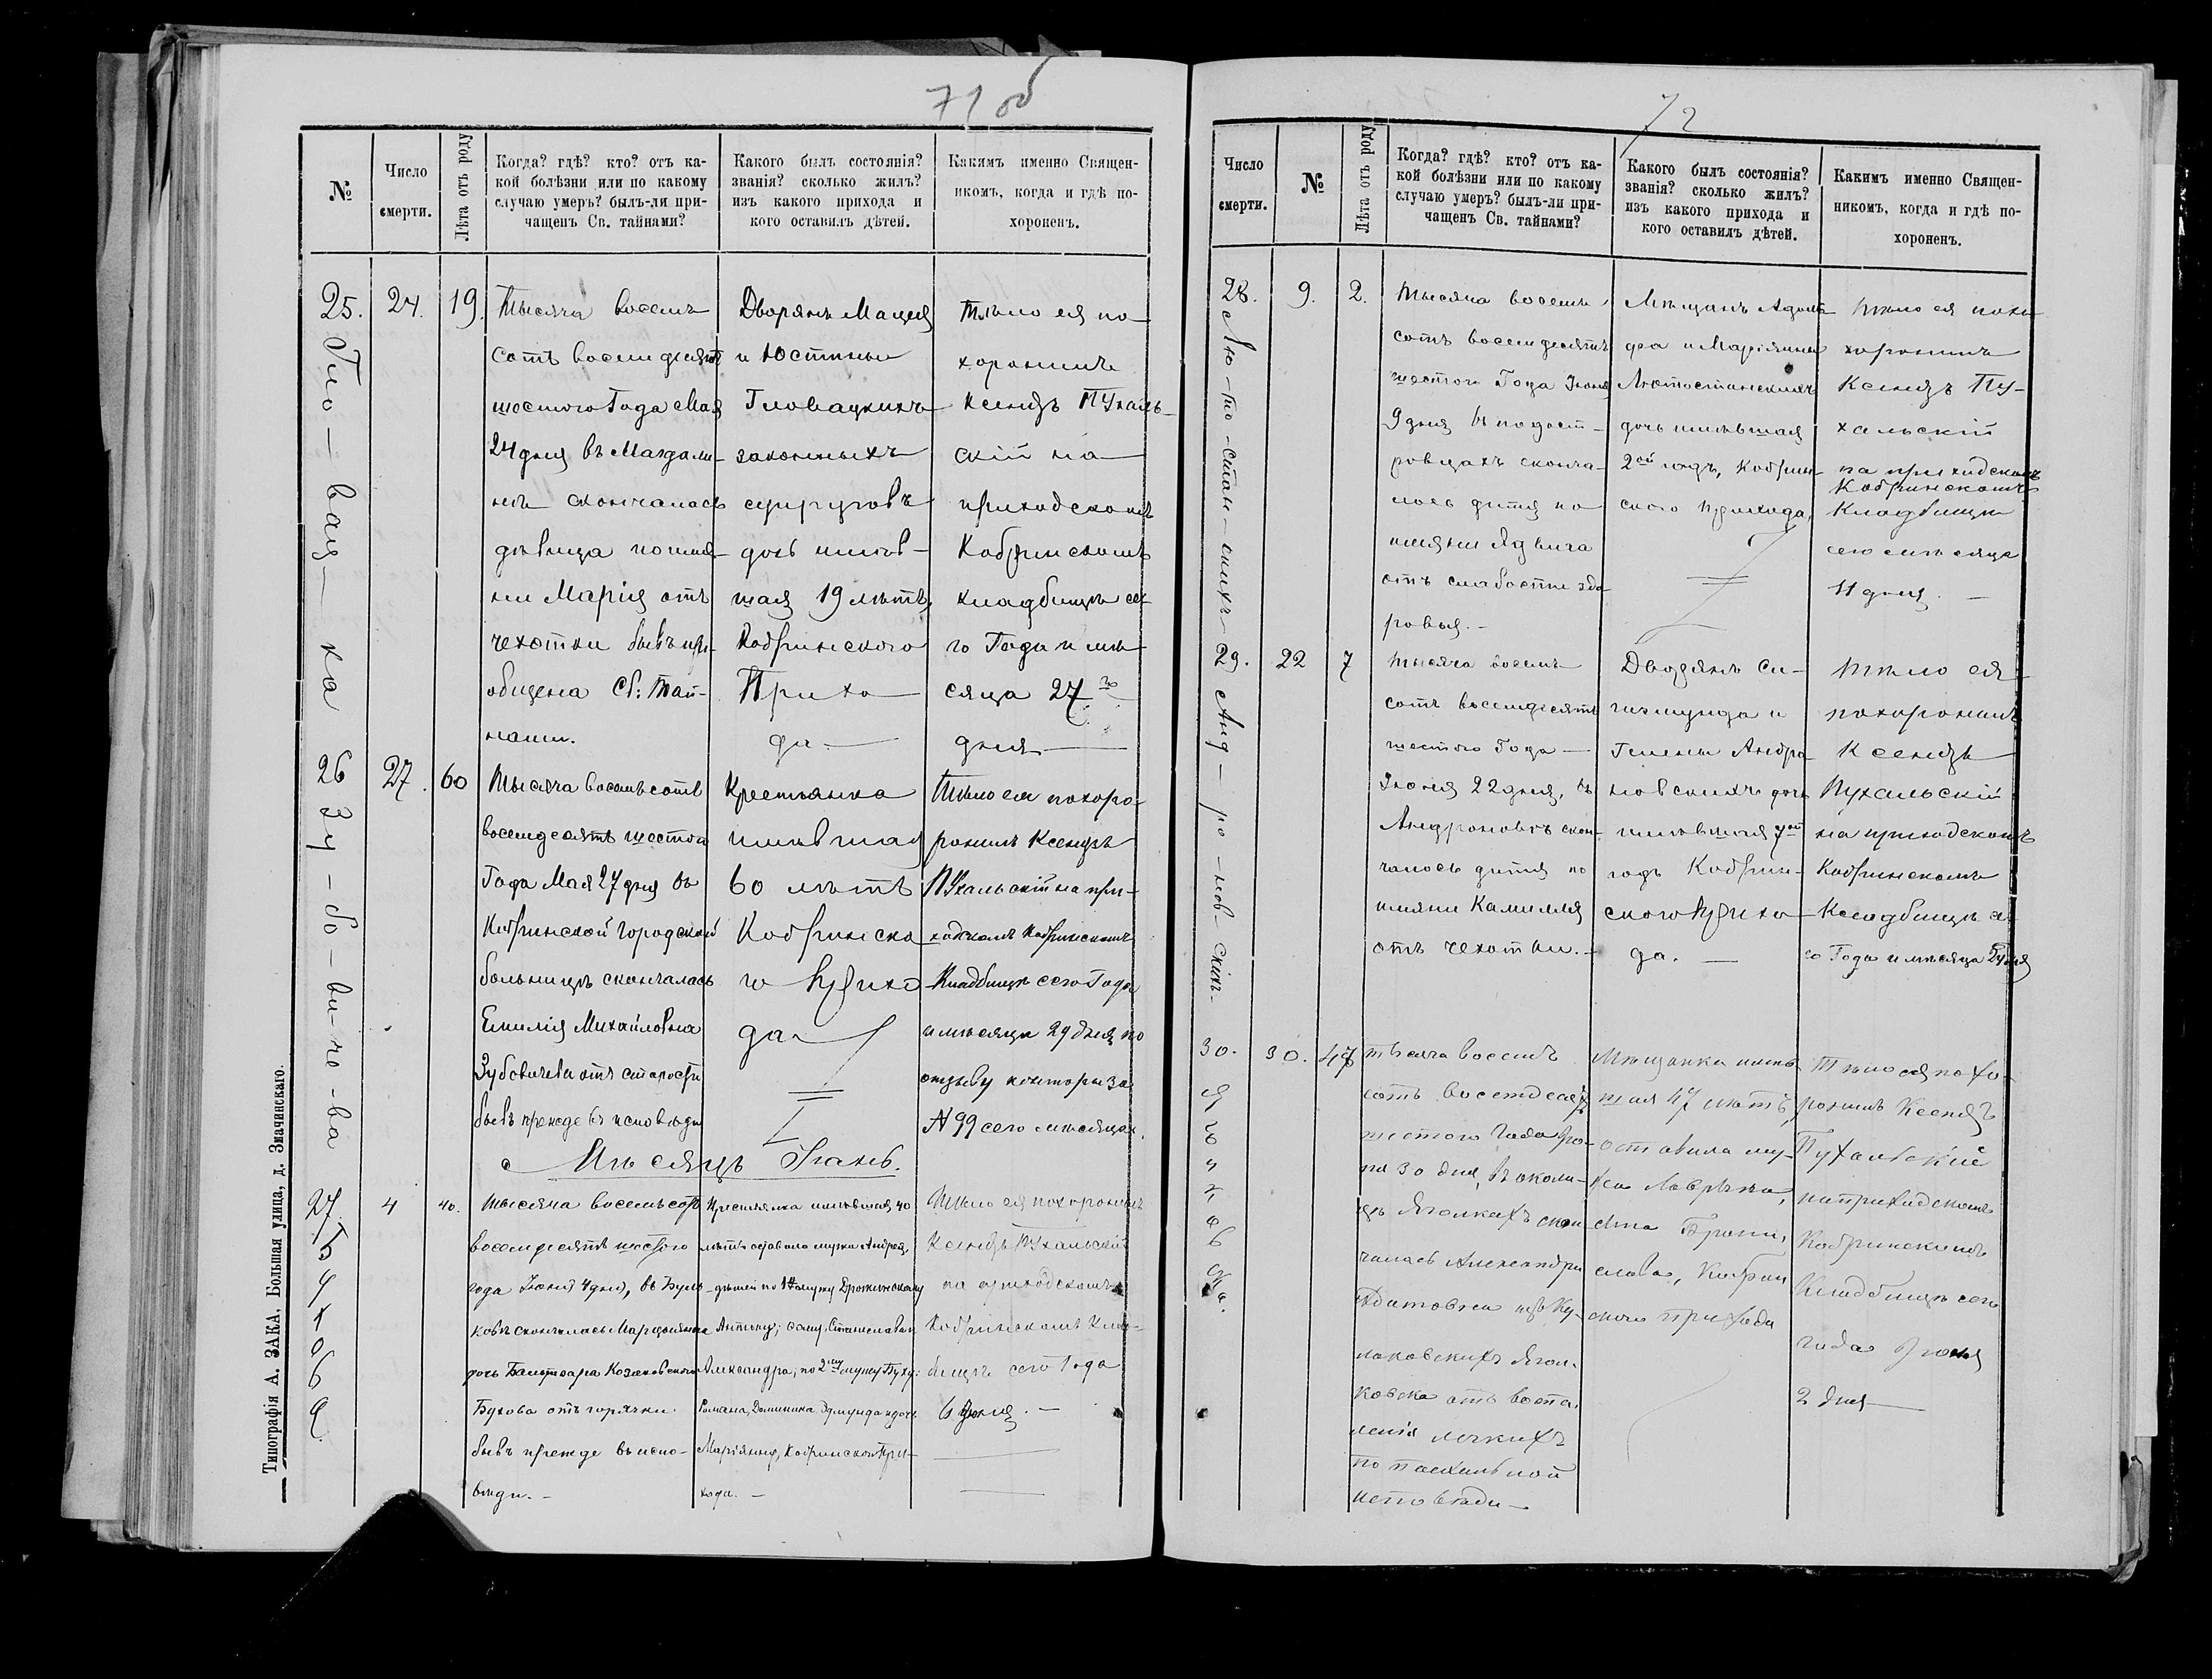 71 об
№
Число смерти.
Лѣта отъ роду
Когда? гдѣ? кто? отъ ка-
кой болѣзни или по какому
случаю умеръ? былъ-ли при-
чащенъ Св. тайнами?
Какого былъ состоянія?
званія? сколько жилъ?
изъ какого прихода и
кого оставилъ дѣтей.
Какимъ именно Священ-
никомъ, когда и гдѣ по-
хороненъ.
25.
Гло-вац-ка
24.
19.
Тысяча восемь
сотъ восемдесятъ
шестого Года Мая
24 дня въ Магдали-
нѣ скончалась
дѣвица по имя-
ни Марія отъ
чехотки бывъ прі-
общена Св: Тай-
нами.
Дворянъ Мацея
и Юстины
Гловацкихъ
законныхъ
супруговъ
дочь имѣв-
шая 19 лѣтъ,
Кобринского
Прихо-
да
Тѣло ея по-
хоронилъ
Ксендзъ Пухаль-
скій на
приходскомъ
Кобринскомъ
кладбищѣ се-
го Года и мѣ-
сяца 27 го
дня
26
Зу-бо-ви-че-ва
27.
60
Тысяча восемьсотъ
восемдесятъ шестого
Года Мая 27 дня въ
Кобринской городской
больницѣ скончалась
Емилія Михайловна
Зубовичева отъ старости
бывъ прежде въ исповѣди
Крестьянка
имѣвшая
60 лѣтъ
Кобринска-
го прихо-
да
Тѣло ея похоро-
ронилъ Ксендзъ
Пухальскій на при-
ходскомъ Кобринскомъ
Кладбищѣ сего Года
и мѣсяца 29 дня по
отзыву конторы за
№ 99 сего мѣсяца.
Мѣсяцъ Іюнь.
27.
Бухова
4
40.
Тысяча восемьсотъ
восемдесятъ шестого
года Іюня 4 дня, въ Бухо-
ковѣ скончалась Марцыянна
дочь Балтазара Козаковского
Бухова отъ горячки
бывъ прежде въ испо-
вѣди.
Крестьянка имѣвшая 40
лѣтъ оставила мужа Андрея,
дѣтей по 1му мужу Дрожинскому
Антину; сыну. Станиславъ
Александра; по 2му мужу Буху:
Романа, Доминика Эдмунда и дочь
Маріянну, Кобринскаго При-
хода.
Тѣло ея похоронилъ
Ксендзъ Пухальскій
на приходскомъ
Кобринскомъ Клад-
бищѣ сего Года
6 Іюня.
72
Число смерти.
№
Лѣта отъ роду
Когда? гдѣ? кто? отъ ка-
кой болѣзни или по какому
случаю умеръ? былъ-ли при-
чащенъ Св. тайнами?
Какого былъ состоянія?
званія? сколько жилъ?
изъ какого прихода и
кого оставилъ дѣтей.
Какимъ именно Священ-
никомъ, когда и гдѣ по-
хороненъ.
28.
Лю-то-стан-скихъ
9.
2.
Тысяча восемь
сотъ восемдесятъ
шестого Года Іюня
9 дня въ подост-
ровцахъ сконча-
лось дитя по
имяни Ядвига
отъ слабости здо-
ровья.
Мѣщанъ Адоль-
фа и Маріянны
Лютостанскихъ
дочь имѣвшая
2ой годъ, Кобрин-
ского прихода,
Тѣло ея похо-
хоронилъ
Ксендзъ Пу-
хальскій
на приходскомъ
Кобринскомъ
Кладбищѣ
сего мѣсяца
11 дня.
29.
Анд-ро-нов-скихъ
22
7
Тысяча восемь
сотъ восемдесятъ
шестого Года
Іюня 22 дня, въ
Андроновѣ скон-
чалось дитя по
имяни Камилля
отъ чехотки.
Дворянъ Си-
гизмунда и
Гелены Андро-
новскихъ дочь
имѣвшая 7ой
годъ Кобрин-
ского прихо-
да.
Тѣло ея
похоронилъ
Ксендзъ
Пухальскій
на приходскомъ
Кобринскомъ
Кладбищѣ се-
го Года и мѣсяца 24 дня
30.
30.
47
Тысяча восемъ
сотъ восемдесятъ
шестого Года Ію-
ня 30 дня, въ околи-
цѣ Яголкахъ скон-
чалась Александра
изъ Ку-
лаковскихъ Ягол-
ковска отъ воспа-
ленія легкихъ
по пасхальной
исповѣди
Мѣщанка имѣв-
шая 47 лѣтъ,
оставила му-
жа Лаврына,
сына Брони-
слава, Кобрин-
ского прихода
Тѣло ея похо-
ронилъ Ксендзъ
Пухальскій
на приходскомъ
Кобринскомъ
Кладбищѣ сего
года Іюля
2 дня
Типографія А. ЗАКА, Большая улица, д. Значинскаго.